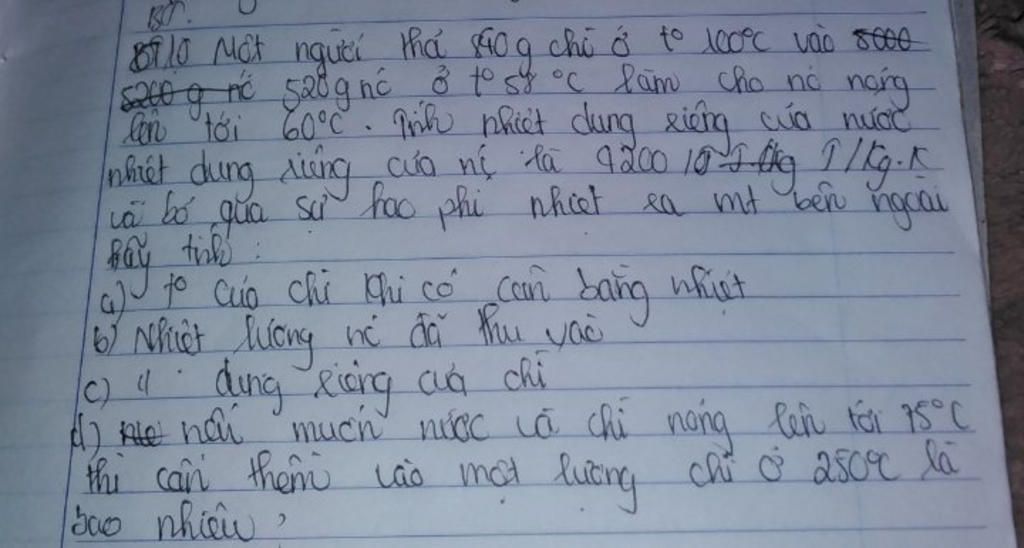 BT.
B710 Một người thả 840g chì ở t° 100°C vào 5000
5200 g nc 520g nc ở t° 58 °C làm cho nc nóng
lên tới 60°C. Tính nhiệt dung riêng của nước
nhiệt dung riêng của nc là 4200 J/kg.K
và bỏ qua sự hao phí nhiệt ra mt bên ngoài
Hãy tính:
a) t° của chì khi có cân bằng nhiệt
b) Nhiệt lượng nc đã thu vào
c) " dung riêng của chì
d) nếu muốn nước và chì nóng lên tới 75°C
thì cần thêm vào một lượng chì ở 250°C là
bao nhiêu?